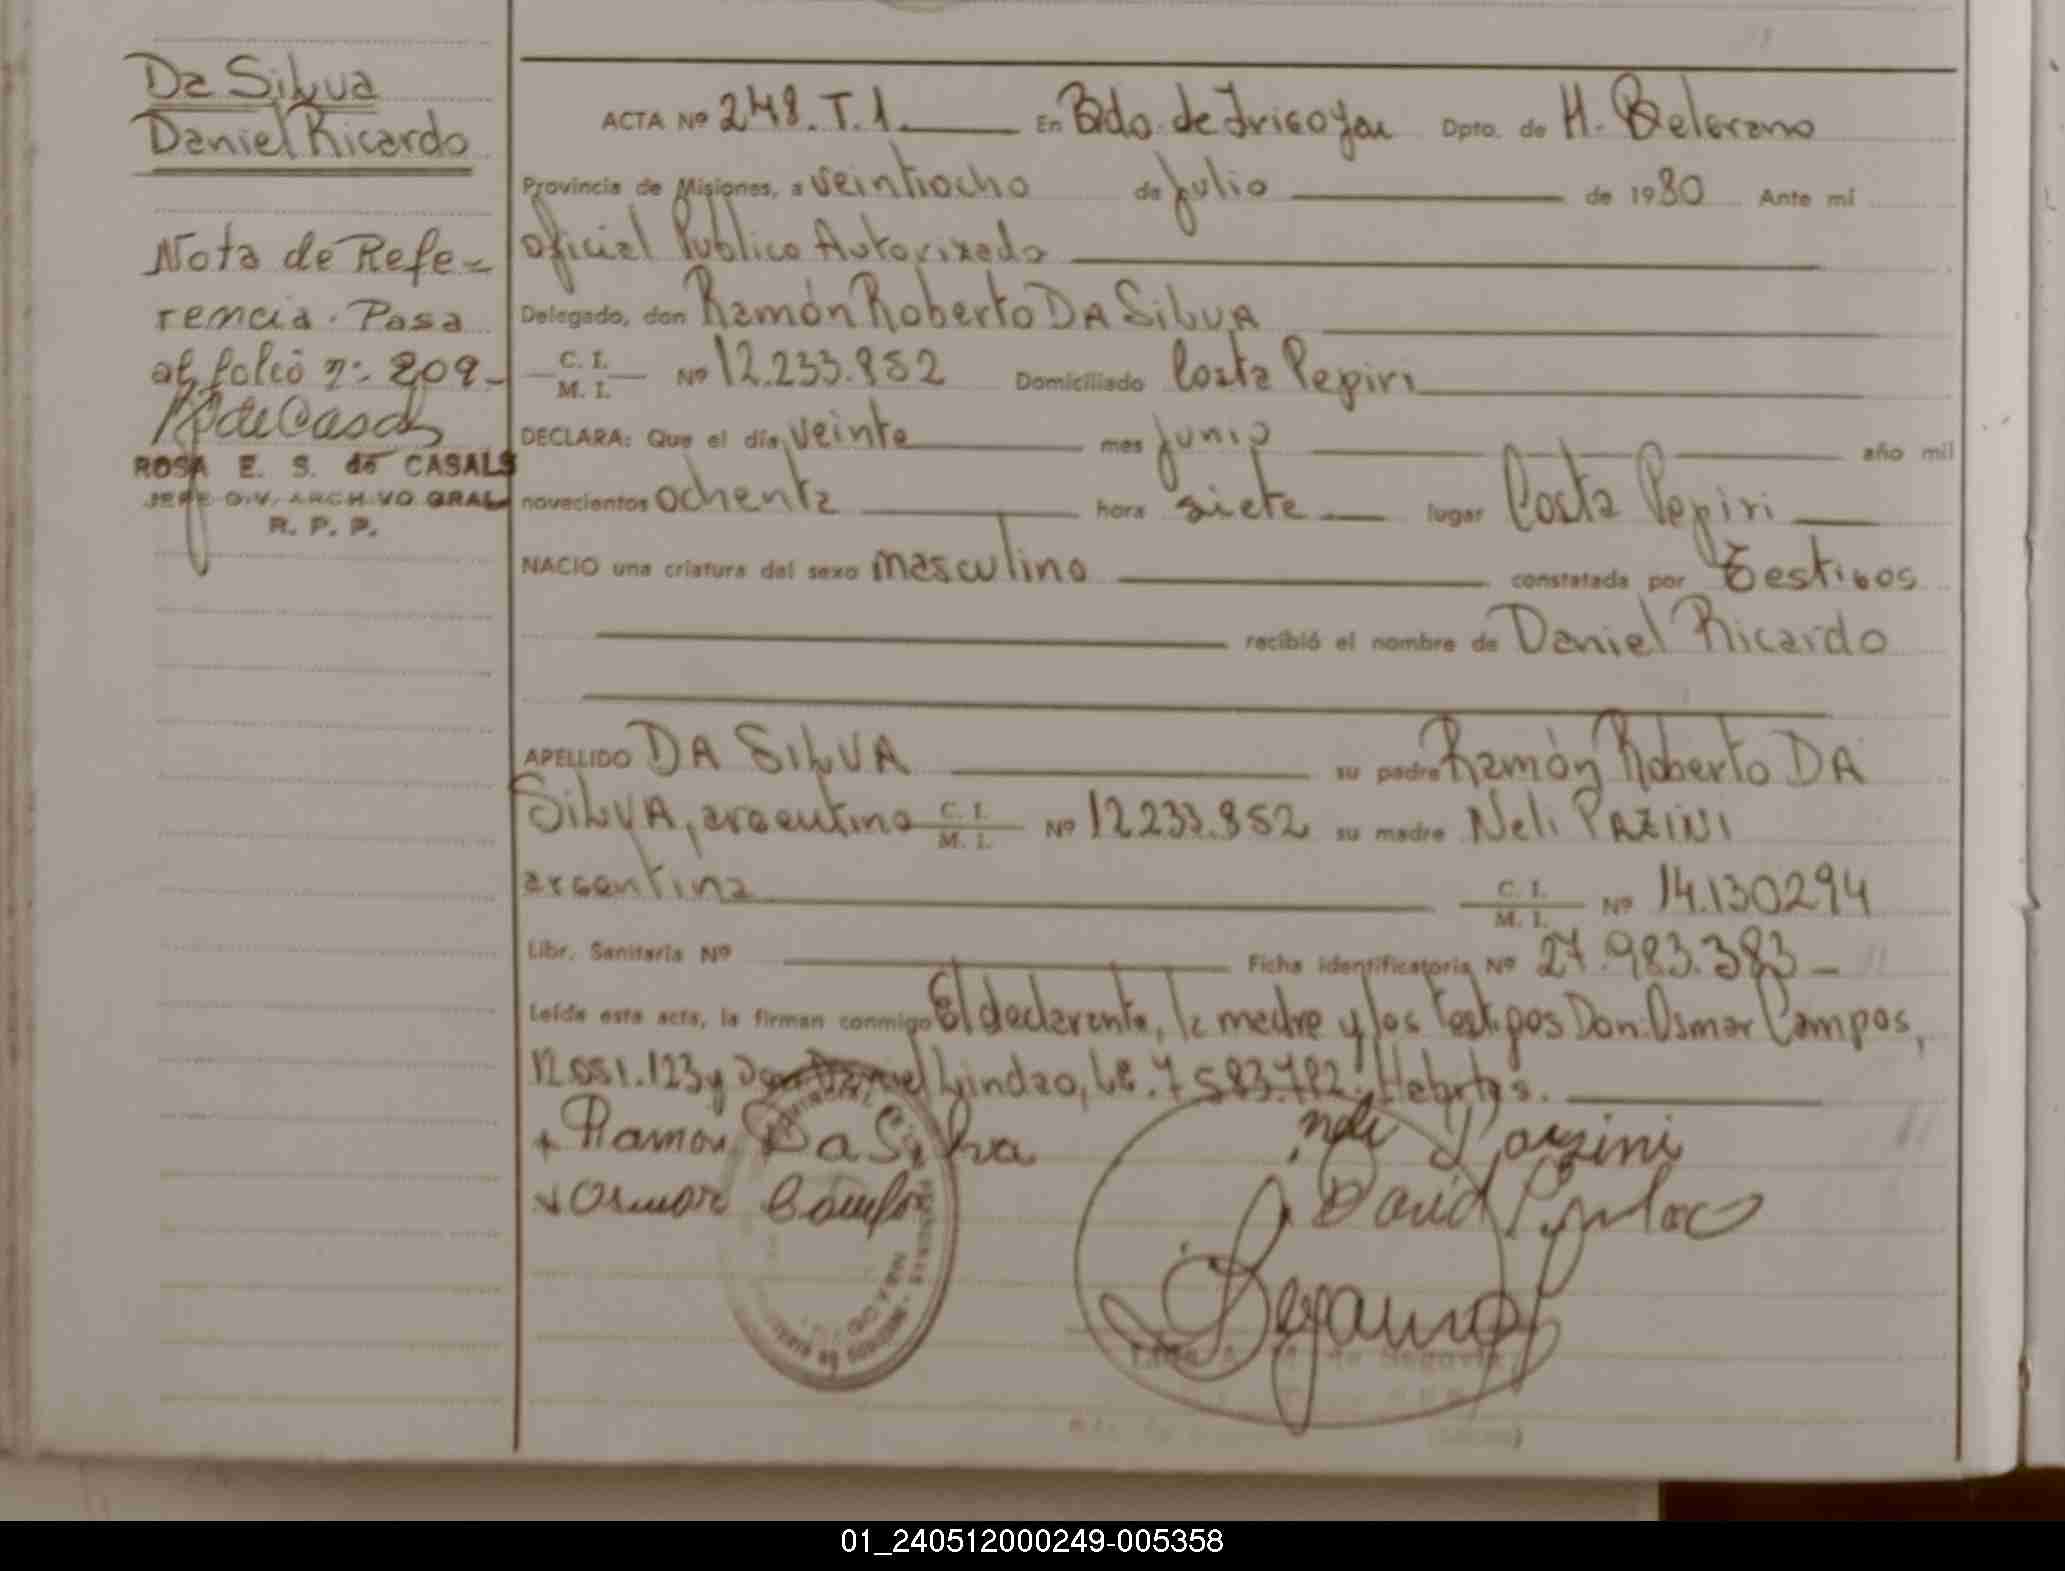 Da Silva
Daniel Ricardo
Nota de Refe-
rencia. Pasa
al folio nº 209-
ROSA E. S. de CASALS
JEFE DIV. ARCHIVO GRAL
R. P. P.
ACTA Nº 248. T. 1. En Bdo. de Irigoyen Dpto. de H. Belgrano
Provincia de Misiones, a veintiocho de julio de 1980 Ante mi
oficial Publico Autorizado
Delegado, don Ramón Roberto DA SILVA
C. I. / M. I. Nº 12.233.852 Domiciliado Costa Pepiri
DECLARA: Que el día veinte mes junio año mil
novecientos ochenta hora siete lugar Costa Pepiri
NACIO una criatura del sexo masculino constatada por Testigos
recibió el nombre de Daniel Ricardo
APELLIDO DA SILVA su padre Ramón Roberto DA
SILVA, argentino C. I. / M. I. Nº 12.233.852 su madre Neli PAZINI
argentina C. I. / M. I. Nº 14.130294
Libr. Sanitaria Nº Ficha identificatoria Nº 27.983.383-
Leída esta acta, la firman conmigo El declarante, la madre y los testigos Don Osmar Campos,
y Lindao,
+ Ramon Da Silva Neli Pazini
Osmar Campo David
01_240512000249-005358